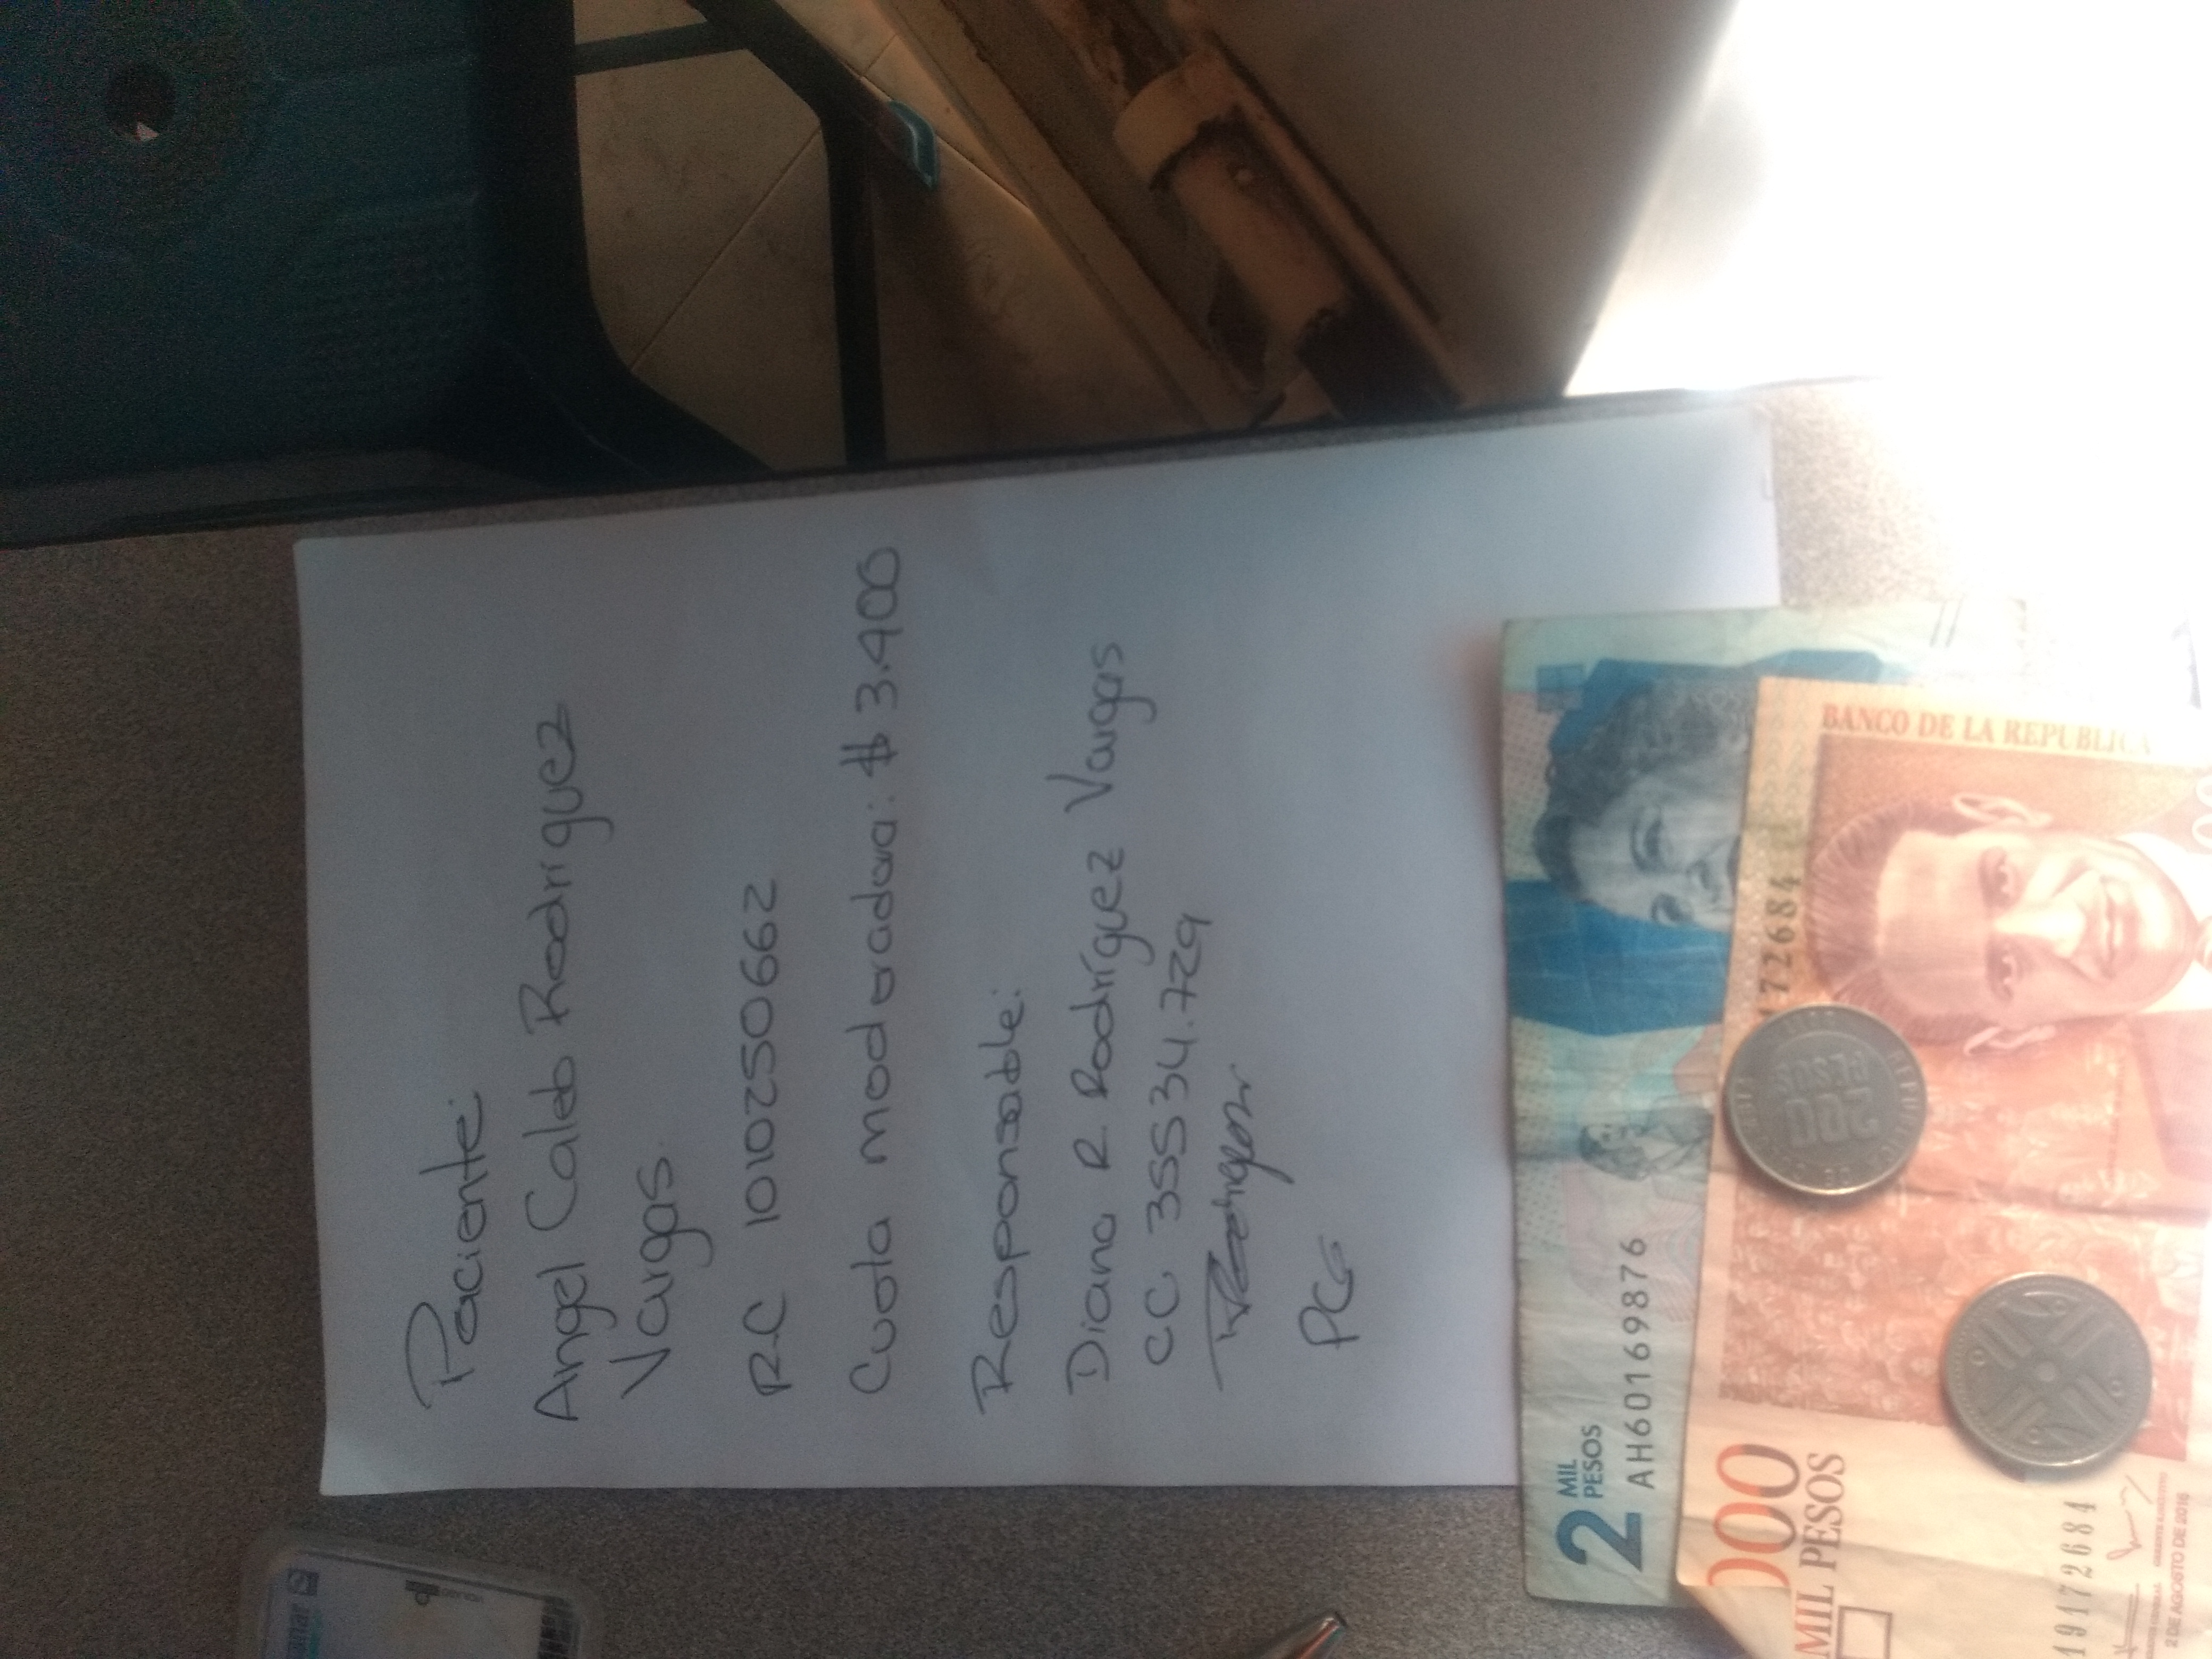 Paciente:
Angel Caleb Rodriguez
Vargas
RC 1010250662
Cuota moderadora: $ 3.400
Responsable:
Diana R. Rodríguez Vargas
CC 35534.729
PCG
2 MIL
PESOS
AH60169876
BANCO DE LA REPUBLICA
172684
200
PESOS
000
MIL PESOS
19172684
2 DE AGOSTO DE 2016